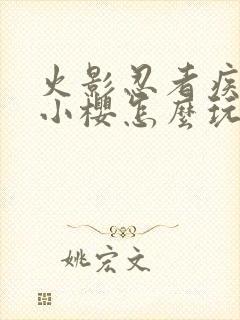 火影忍者疾
小櫻怎麼玩
姚宏文